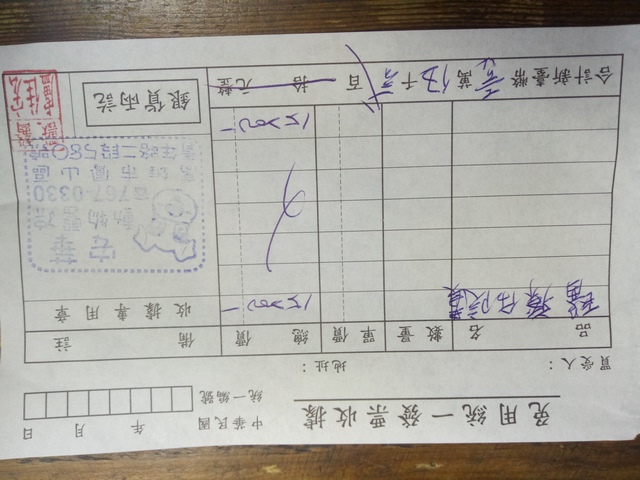 免用統一發票收據
中華民國 年 月 日
統一編號
買受人：
地址：
品名 數量 單價 總價 備註
醫療住院費 15200 收據專用章
安華
動物醫院
767-0330
高雄市鳳山區
青年路二段580號
15200
銀貨兩訖
合計新臺幣 壹萬伍千 百 拾 元整